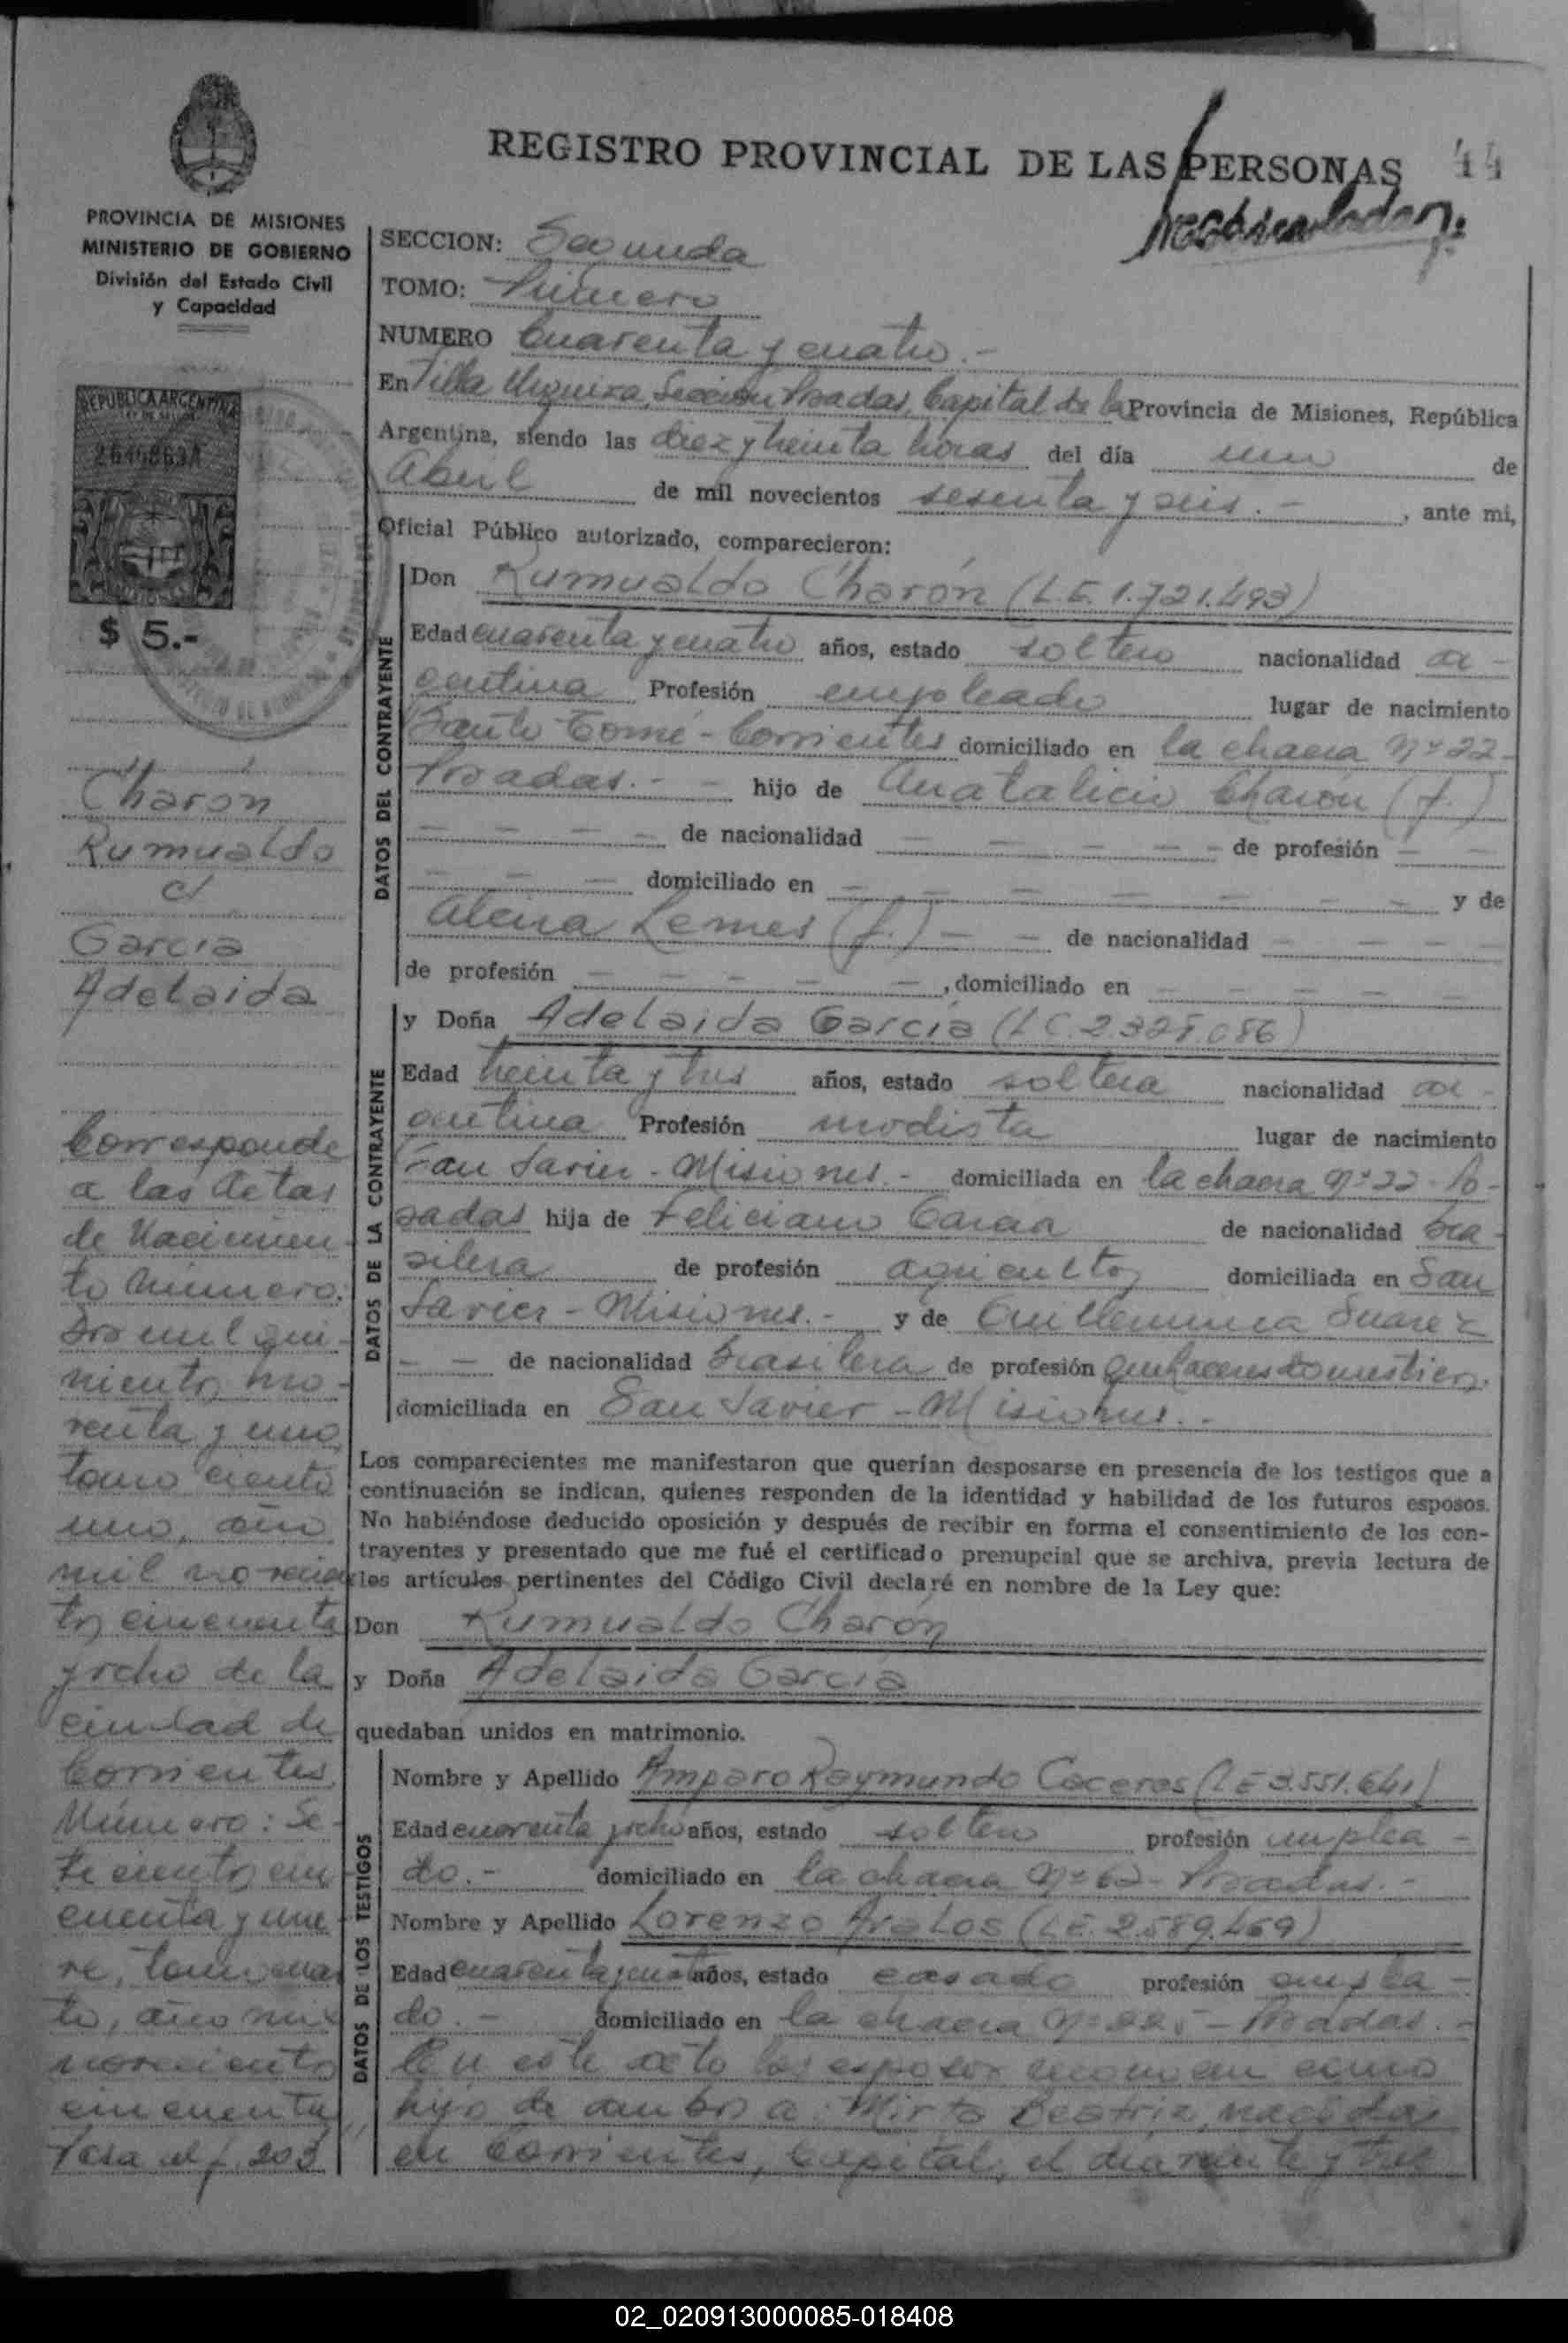 REGISTRO PROVINCIAL DE LAS PERSONAS 44
PROVINCIA DE MISIONES
MINISTERIO DE GOBIERNO
División del Estado Civil
y Capacidad
REPUBLICA ARGENTINA
$ 5.-
Charon
Rumualdo
c/
Garcia
Adelaida
SECCION: Segunda
TOMO: Primero
NUMERO Cuarenta y cuatro.-
En Villa Urquiza, Sección Posadas, Capital de la Provincia de Misiones, República
Argentina, siendo las diez y treinta horas del día uno de
Abril de mil novecientos sesenta y seis.- , ante mi,
Oficial Público autorizado, comparecieron:
DATOS DEL CONTRAYENTE
Don Rumualdo Charón (L.E. 1.721.493)
Edad cuarenta y cuatro años, estado soltero nacionalidad ar-
gentina Profesión empleado lugar de nacimiento
Santo Tomé - Corrientes domiciliado en la chacra Nº 22-
Posadas.- - hijo de Anatalicio Charón (f.)
- - - - de nacionalidad - - - - de profesión - -
- - - domiciliado en - - - - - - - y de
Alcira Lemes (f.) - - de nacionalidad - - - -
de profesión - - - - , domiciliado en - - - - -
DATOS DE LA CONTRAYENTE
y Doña Adelaida García (LC. 2.325.086)
Edad treinta y tres años, estado soltera nacionalidad ar-
gentina Profesión modista lugar de nacimiento
San Javier - Misiones.- domiciliada en la chacra Nº 22 - Po-
sadas hija de Feliciano García de nacionalidad bra-
silera de profesión agricultor domiciliada en San
Javier - Misiones.- y de Guillermina Suarez
- - de nacionalidad brasilera de profesión quehaceres domesticos.
domiciliada en San Javier - Misiones.-
Los comparecientes me manifestaron que querían desposarse en presencia de los testigos que a
continuación se indican, quienes responden de la identidad y habilidad de los futuros esposos.
No habiéndose deducido oposición y después de recibir en forma el consentimiento de los con-
trayentes y presentado que me fué el certificado prenupcial que se archiva, previa lectura de
los artículos pertinentes del Código Civil declaré en nombre de la Ley que:
Don Rumualdo Charón
y Doña Adelaida García
quedaban unidos en matrimonio.
DATOS DE LOS TESTIGOS
Nombre y Apellido Amparo Raymundo Caceres (LE 3.551.641)
Edad cuarenta y ocho años, estado soltero profesión emplea-
do.- domiciliado en la chacra Nº 62 - Posadas.-
Nombre y Apellido Lorenzo Avalos (LE. 2.589.469)
Edad cuarenta y cuatro años, estado casado profesión emplea-
do.- domiciliado en la chacra Nº - Posadas.-
En este acto los esposos reconocen como
hijos de ambos a: Mirta Beatriz, nacidas
en Corrientes, Capital, el día veinte y tres
Corresponde
a las Actas
de Nacimien-
to Número:
Dos mil qui-
nientos no-
venta y uno,
tomo ciento
uno, año
mil novecien-
tos cincuenta
y ocho de la
ciudad de
Corrientes
Número: Se-
tecientos cin-
cuenta y nue-
ve, tomo cua-
to, año mil
novecientos
cincuenta
Pasa al f. 203
02_020913000085-018408